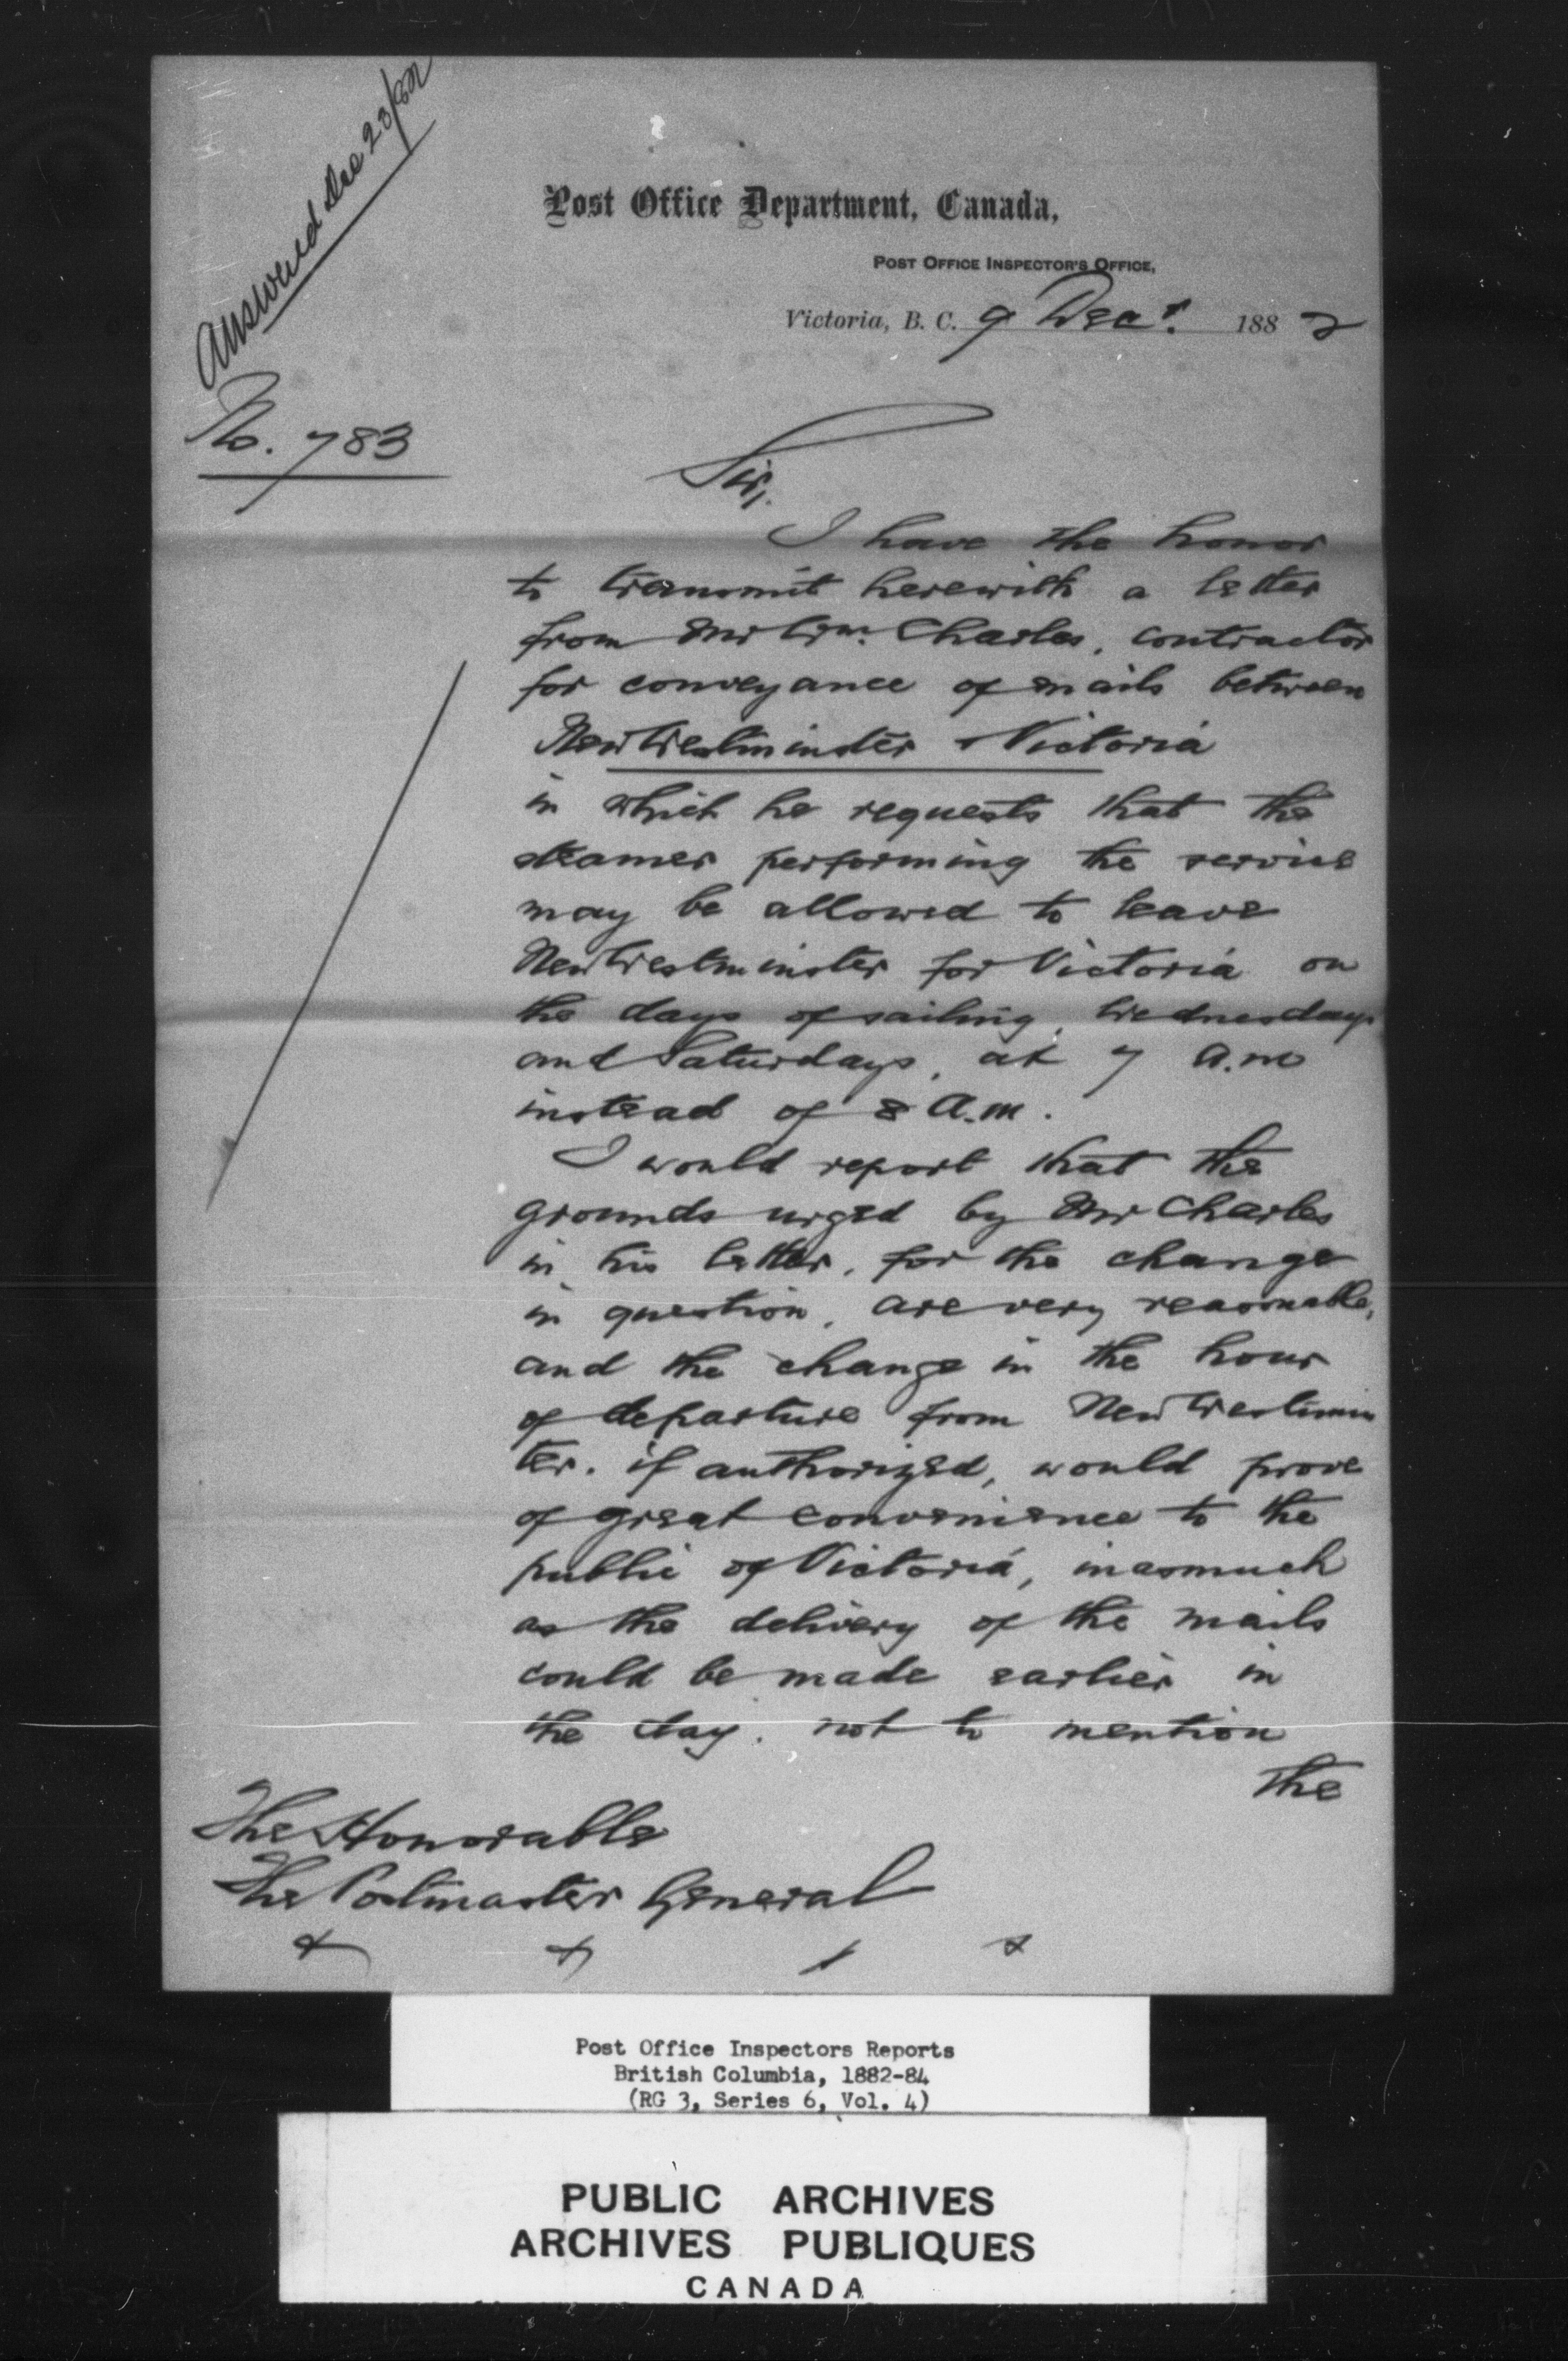 Answered Dec 23/82
Post Office Department, Canada,
Post Office Inspector's Office,
Victoria, B. C. 9 Decr. 1882
No. 783
Sir,
I have the honor
to transmit herewith a letter
from Mr Wm. Charles, contractor
for conveyance of mails between
New Westminster & Victoria
in which he requests that the
steamer performing the service
may be allowed to leave
New Westminster for Victoria on
the days of sailing, Wednesdays
and Saturdays, at 7 a.m
instead of 8 a.m.
I would report that the
grounds urged by Mr Charles
in his letter, for the change
in question, are very reasonable,
and the change in the hour
of departure from New Westmin
ter. if authorized, would prove
of great convenience to the
public of Victoria, inasmuch
as the delivery of the mails
could be made earlier in
the day, not to mention
the
The Honorable
The Postmaster General
Post Office Inspectors Reports
British Columbia, 1882-84
(RG 3, Series 6, Vol. 4)
PUBLIC ARCHIVES
ARCHIVES PUBLIQUES
CANADA